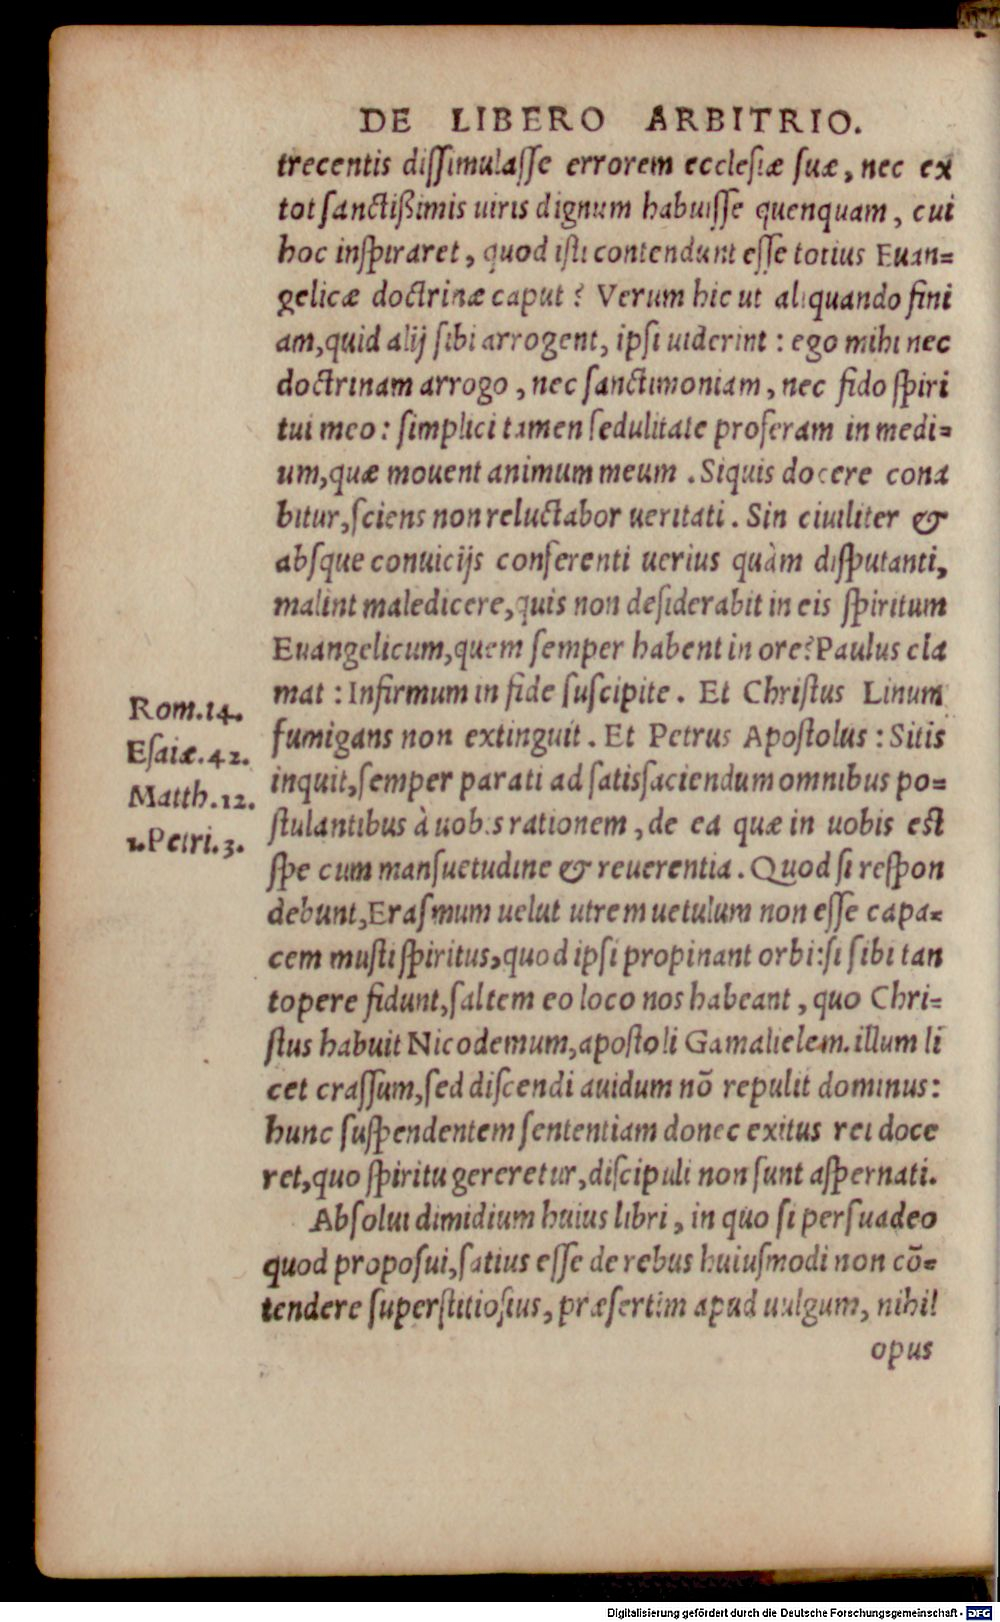 DE LIBERO ARBITRIO.
trecentis diſſimulaſſe errorem eccleſiæ ſuæ, nec ex
tot ſanctißimis uiris dignum habuiſſe quenquam, cui
hoc inſpiraret, quod iſti contendunt eſſe totius Euan=
gelicæ doctrinæ caput? Verum hic ut aliquando fini
am, quid alij ſibi arrogent, ipſi uiderint: ego mihi nec
doctrinam arrogo, nec ſanctimoniam, nec fido ſpiri
tui meo: ſimplici tamen ſedulitate proferam in medi=
um, quæ mouent animum meum. Siquis docere cona
bitur, ſciens non reluctabor ueritati. Sin ciuiliter &
abſque conuicijs conferenti uerius quàm diſputanti,
malint maledicere, quis non deſiderabit in eis ſpiritum
Euangelicum, quem ſemper habent in ore? Paulus cla
mat: Infirmum in fide ſuſcipite. Et Chriſtus Linum
fumigans non extinguit. Et Petrus Apoſtolus: Sitis
inquit, ſemper parati ad ſatisfaciendum omnibus po=
ſtulantibus à uobis rationem, de ea quæ in uobis est
ſpe cum manſuetudine & reuerentia. Quod ſi reſpon
debunt, Eraſmum uelut utrem uetulum non eſſe capa=
cem muſti ſpiritus, quod ipſi propinant orbi: ſi ſibi tan
topere fidunt, ſaltem eo loco nos habeant, quo Chri=
ſtus habuit Nicodemum, apoſtoli Gamalielem. illum li
cet craſſum, ſed diſcendi auidum nõ repulit dominus:
hunc ſuſpendentem ſententiam donec exitus rei doce
ret, quo ſpiritu gereretur, diſcipuli non ſunt aſpernati.
Abſolui dimidium huius libri, in quo ſi perſuadeo
quod propoſui, ſatius eſſe de rebus huiuſmodi non cõ=
tendere ſuperſtitioſius, præſertim apud uulgum, nihil
opus
Rom.14.
Eſaiæ.42.
Matth.12.
1.Petri.3.
Digitalisierung gefördert durch die Deutsche Forschungsgemeinschaft - DFG